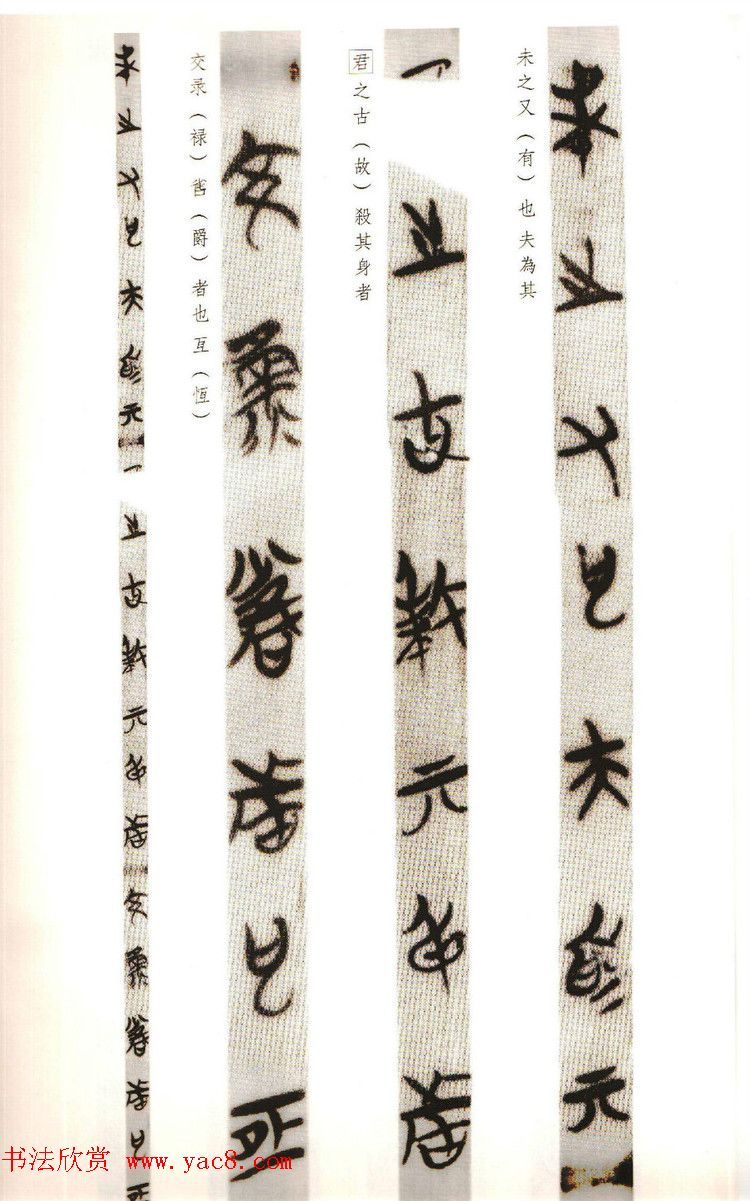 未之又（有）也夫為其
君之古（故）殺其身者
交录（禄）𦥯（爵）者也亙（恆）
书法欣赏 www.yac8.com